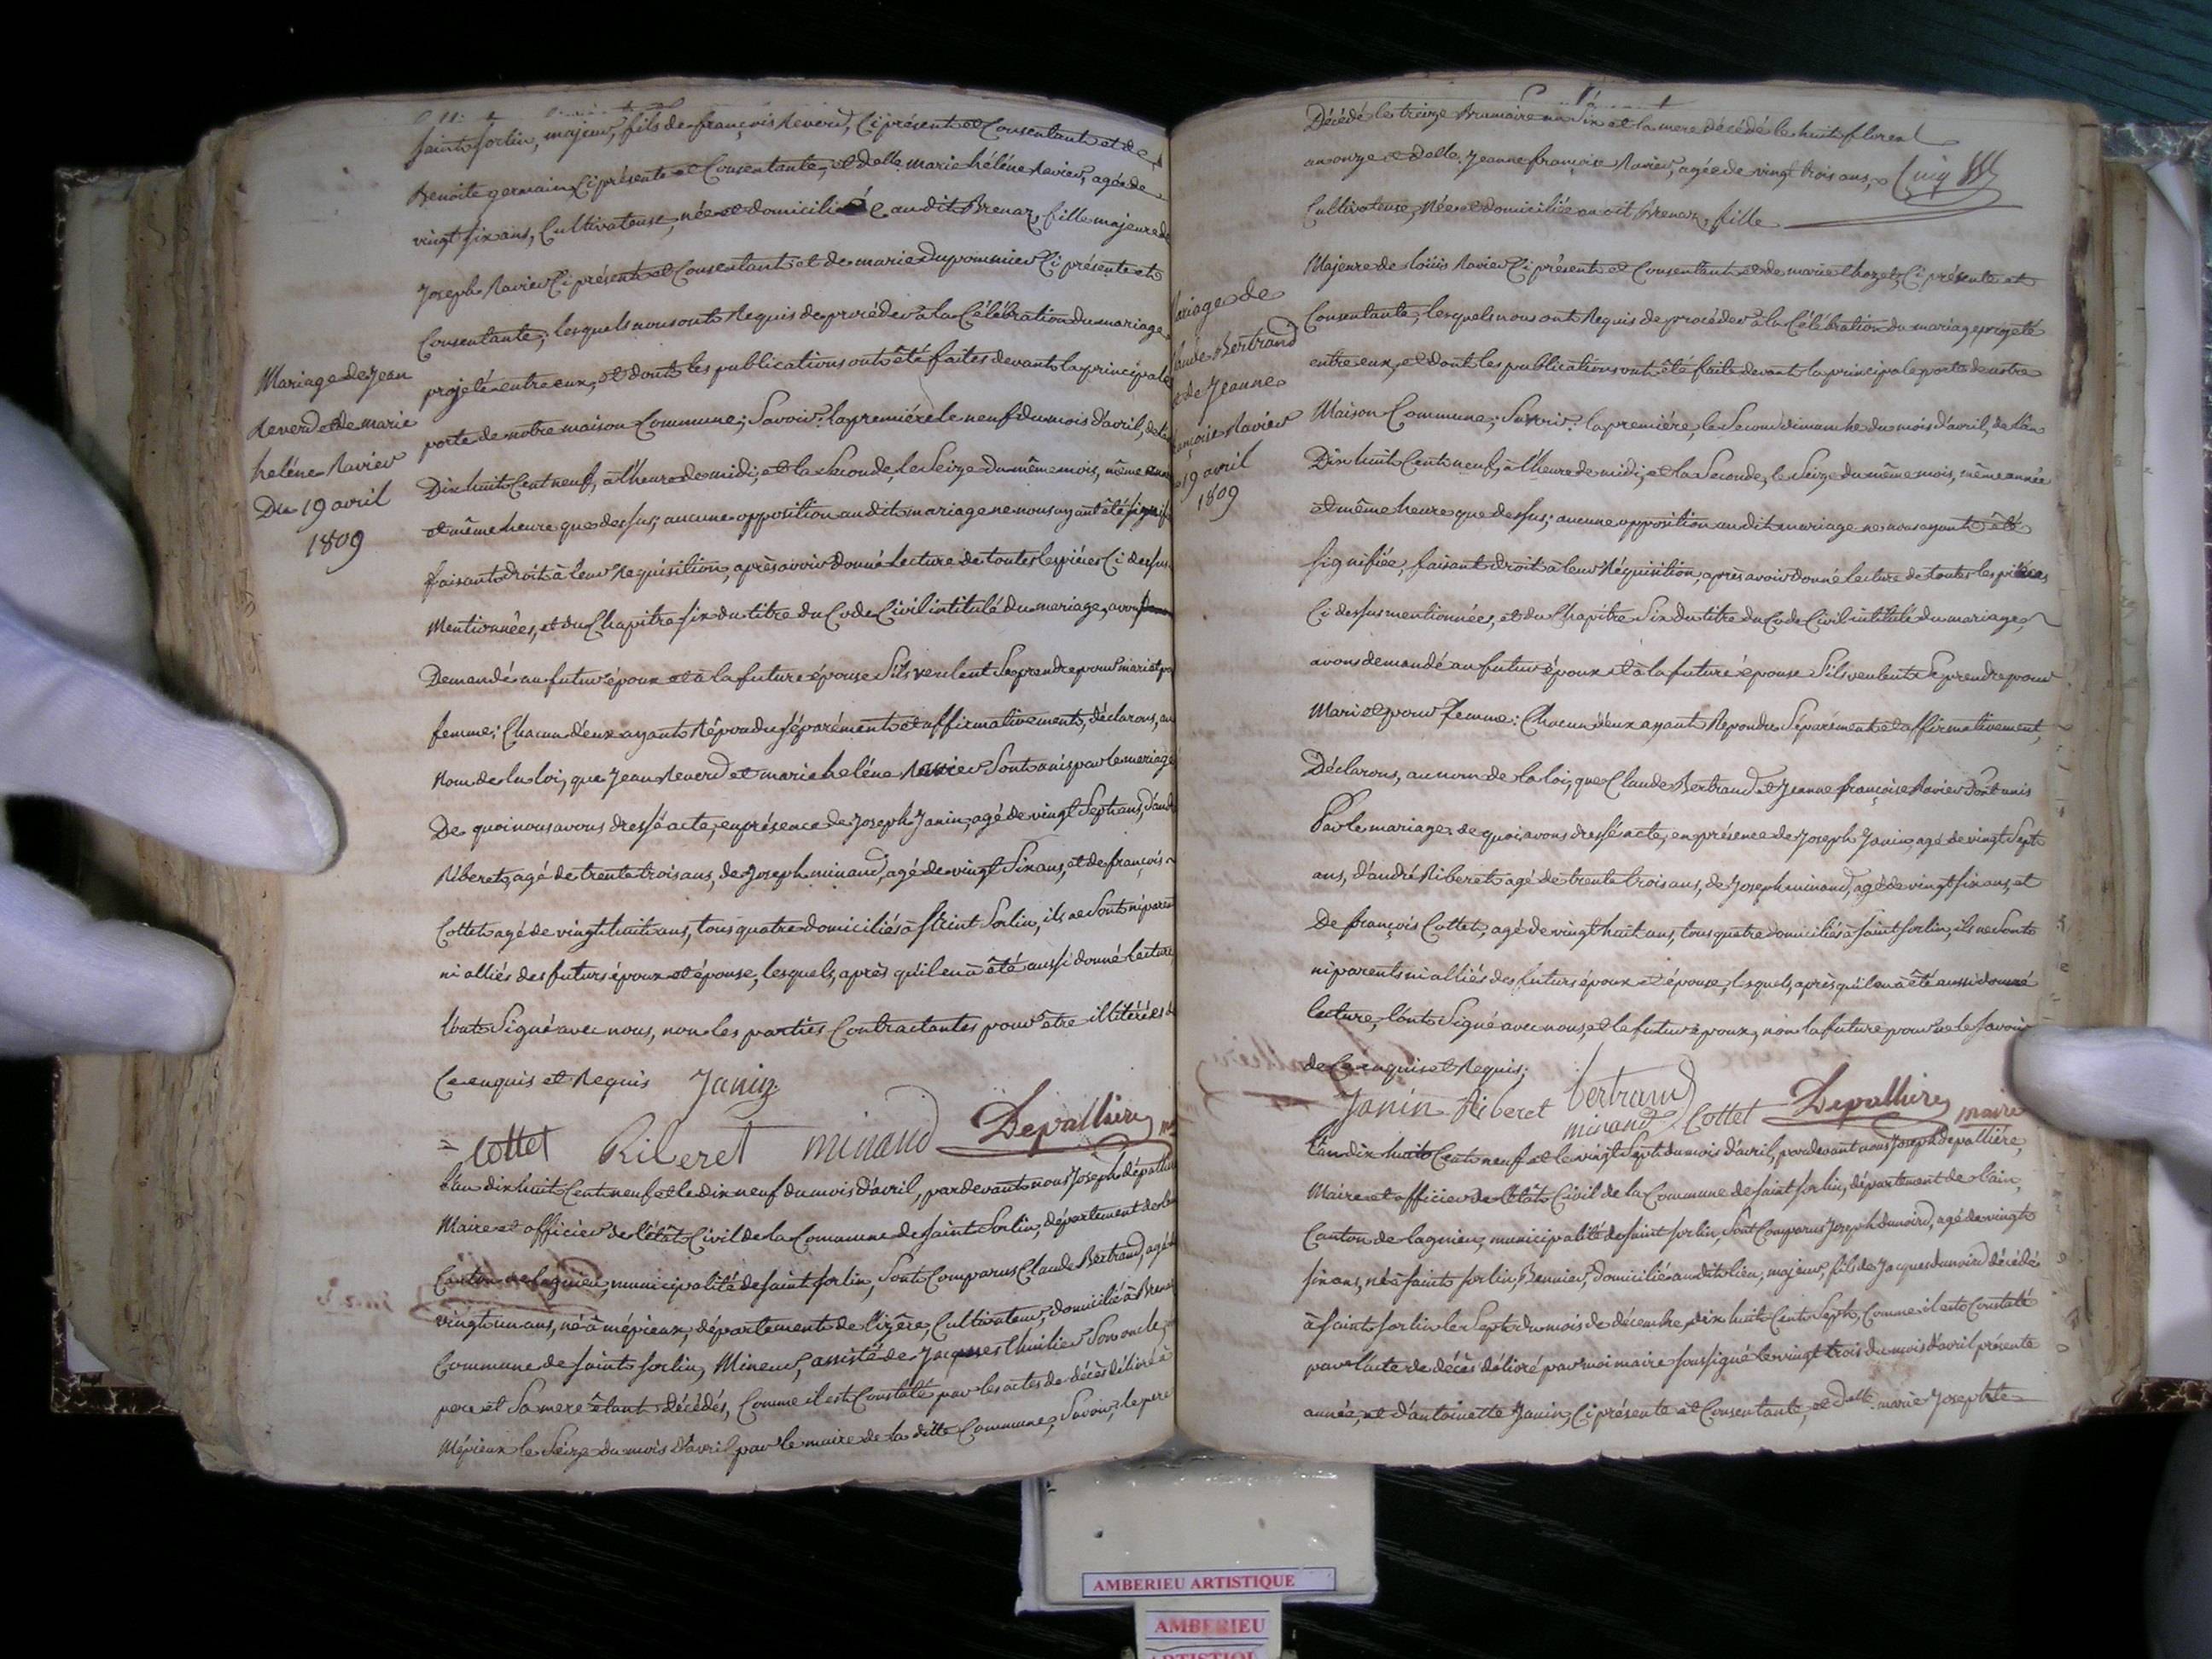 Saint Sorlin, majeur, fils de françois Reverd, Ci présent et Consentant et de
Benoite germain Ci présente et Consentante, et delle. marie hélène Ravier, agée de
vingt six ans, Cultivateuse, née et domiciliée au dit Brenaz, fille majeure de
Joseph Ravier Ci présent et Consentant et de marie dupommier Ci présente et
Consentante; lesquels nous ont Requis de procéder à la Célébration du mariage
projeté entre eux, et dont les publications ont été faites devant la principale
porte de notre maison Commune; Savoir: la première le neuf du mois d'avril, de l'an
Dix huit Cent neuf, à l'heure de midi; et la Seconde, le Seize du même mois, même année
et même heure que dessus; aucune opposition au dit mariage ne nous ayant été signifi
faisant droit à leur Réquisition, après avoir donné Lecture de toutes les pièces Ci dessus
Mentionnées, et du Chapitre six du titre du Code Civil intitulé du mariage, avons
Demandé au futur époux et à la future épouse S'ils veulent Se prendre pour mari et pour
femme; Chacun d'eux ayant Répondu séparément et affirmativement, déclarons, au
Nom de la loi, que Jean Reverd et marie heléne Ravier Sont unis par le mariage
De quoi nous avons dressé acte, en présence de Joseph Janin, agé de vingt Sept ans, d'andré
Riberet, agé de trente trois ans, de Joseph minand, agé de vingt Six ans, et de françois
Cottet agé de vingt huit ans, tous quatre domiciliés à Saint Sorlin, ils ne Sont ni parents
ni alliés des futurs époux et épouse, lesquels, après qu'il en a été aussi donné lecture,
l'ont Signé avec nous, non les parties Contractantes pour être illitérées de
Ce enquis et Requis Janin
= Cottet Riberet minand Depallière
Mariage de Jean
Reverd et de marie
heléne Ravier
Du 19 avril
1809
L'an dix huit Cent neuf et le dix neuf du mois d'avril, par devant nous Joseph dépallière
Maire et officier de l'état Civil de la Commune de Saint Sorlin, département de l'ain
Canton de lagnieu, municipalité de Saint Sorlin, Sont Comparus Claude Bertrand, agé de
vingt un ans, né à mépieux, département de l'izère, Cultivateur, domicilié à Brenaz
Commune de Saint Sorlin, Mineur, assisté de Jacques thuilier Son oncle,
pere et Sa mere étant décédés, Comme il est Constaté par les actes de décès délivré à
Mépieux le Seize du mois d'avril par le maire de la ditte Commune, Savoir, le pere
Décédé le treize Brumaire an Six et la mere décédé le huit floreal
an onze et delle. Jeanne françoise Ravier, agée de vingt trois ans,
Cultivateuse, Née et domiciliée au dit Brenaz, fille
Majeure de loüis Ravier Ci présent et Consentant et de marie Chozet, Ci présente et
Consentante; lesquels nous ont Requis de procéder à la Célébration du mariage projeté
entre eux, et dont les publications ont été faite devant la principale porte de notre
Maison Commune; Savoir: la première, le Second dimanche du mois d'avril, de l'an
Dix huit Cent neuf, à l'heure de midi, et la Seconde, le Seize du même mois, même année
et même heure que dessus; aucune opposition au dit mariage ne nous ayant été
signifiée, faisant droit à leur Réquisition, après avoir donné lecture de toutes les pièces
Ci dessus mentionnées, et du Chapitre Six du titre du Code Civil intitulé du mariage,
avons demandé au futur époux et à la future épouse S'ils veulent Se prendre pour
Mari et pour femme: Chacun d'eux ayant Repondu Séparément et affirmativement,
Déclarons, au nom de la loi, que Claude Bertrand et Jeanne françoise Ravier Sont unis
Par le mariage de quoi avons dressé acte, en présence de Joseph Janin, agé de vingt Sept
ans, d'andré Riberet agé de trente trois ans, de Joseph minand, agé de vingt six ans, et
De françois Cottet, agé de vingt huit ans, tous quatre domiciliés à Saint Sorlin, ils ne Sont
ni parents ni alliés des futurs époux et épouse, lesquels, après qu'il en a été aussi donné
lecture, l'ont Signé avec nous, et le futur époux, non la future pour ne le Savoir
de Ce enquis et Requis;
Janin Riberet bertrand minand Cottet Depallière maire
ariage de
laude Bertrand
de Jeanne
ançoise Ravier
19 avril
1809
L'an dix huit Cent neuf et le vingt Sept du mois d'avril, par devant nous Joseph Depallière,
Maire et officier de l'état Civil de la Commune de Saint Sorlin, département de l'ain,
Canton de lagnieu, municipalité de Saint Sorlin, Sont Comparus Joseph dunoird, agé de vingt
six ans, né à Saint Sorlin, domicilié au dit lieu, majeur, fils de Jacques dunoird décédé
à Saint Sorlin le Sept du mois de décembre, dix huit Cent Sept, Comme il est Constaté
par l'acte de décès délivré par moi maire soussigné le vingt trois du mois d'avril présente
année, et d'antoinette Janin, Ci présente et Consentante, et delle. marie Josephte
AMBERIEU ARTISTIQUE
AMBERIEU
ARTISTIQUE